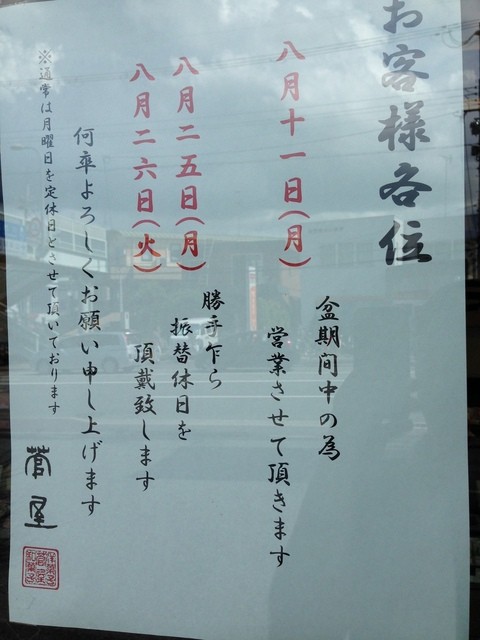 お客様各位
盆期間中の為
八月十一日(月)
営業させて頂きます
勝手乍ら
八月二五日(月)
振替休日を
八月二六日(火)
頂戴致します
何卒よろしくお願い申し上げます
※通常は月曜日を定休日とさせて頂いております
菅屋